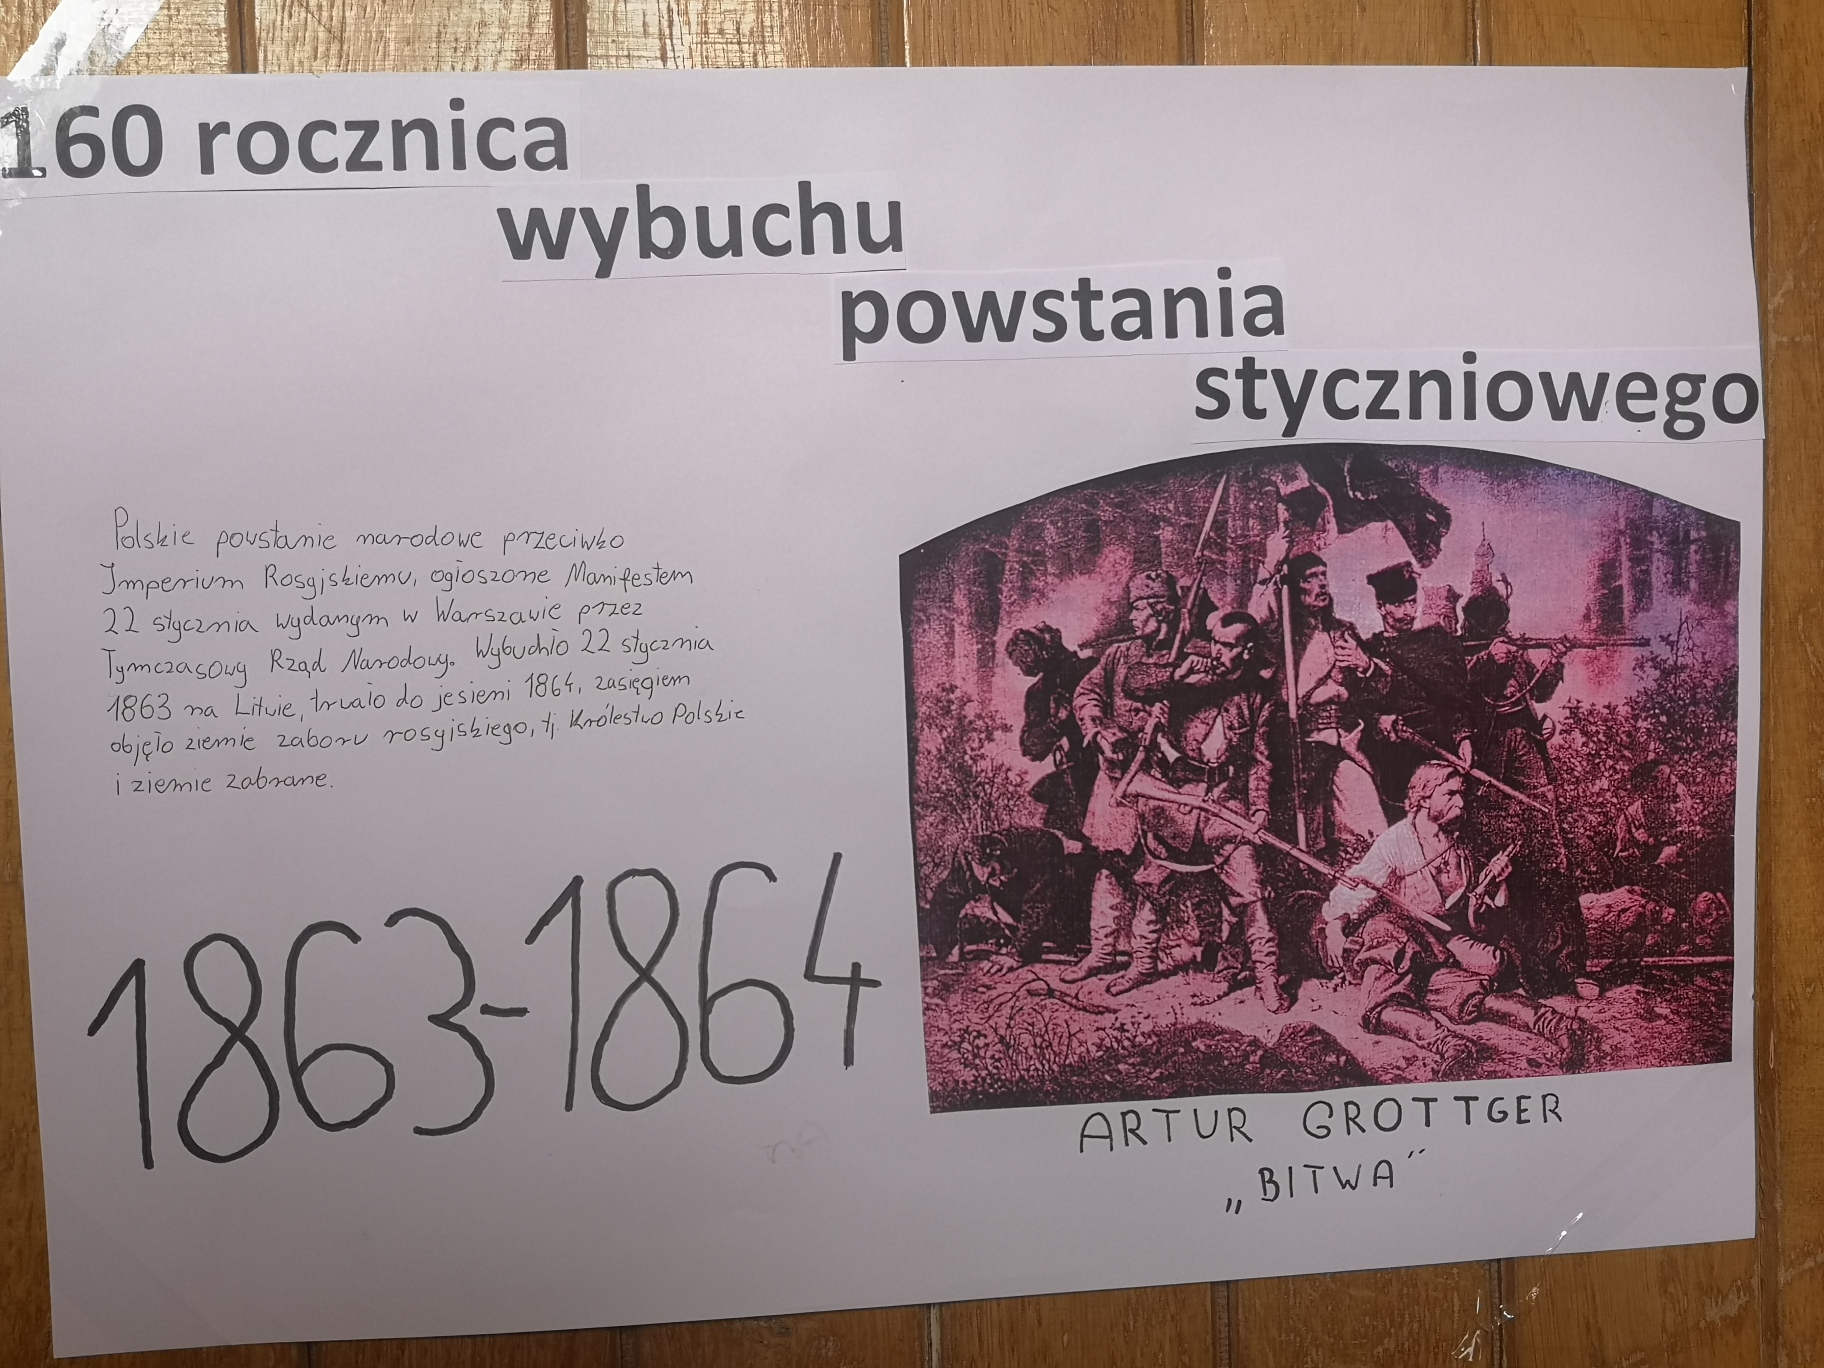 160 rocznica
wybuchu
powstania
styczniowego
Polskie powstanie narodowe przeciwko
Imperium Rosyjskiemu, ogłoszone Manifestem
22 stycznia wydanym w Warszawie przez
Tymczasowy Rząd Narodowy. Wybuchło 22 stycznia
1863 na Litwie, trwało do jesieni 1864, zasięgiem
objęło ziemie zaboru rosyjskiego, tj. Królestwo Polskie
i ziemie zabrane.
1863-1864
ARTUR GROTTGER
„BITWA"